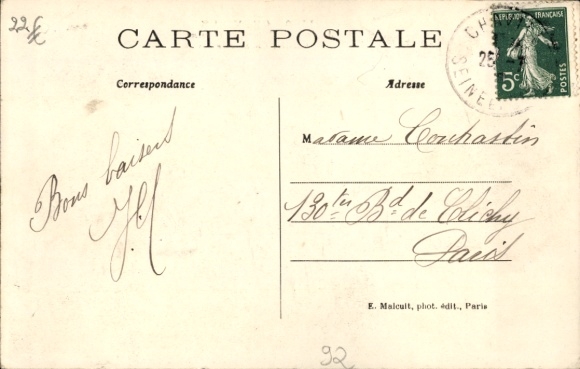 22£
CARTE POSTALE
Correspondance
Adresse
RÉPUBLIQUE FRANÇAISE
5c
POSTES
25
Bons baisers
Madame
130ter Bd de Clichy
Paris
E. Malcuit, phot. édit., Paris
92